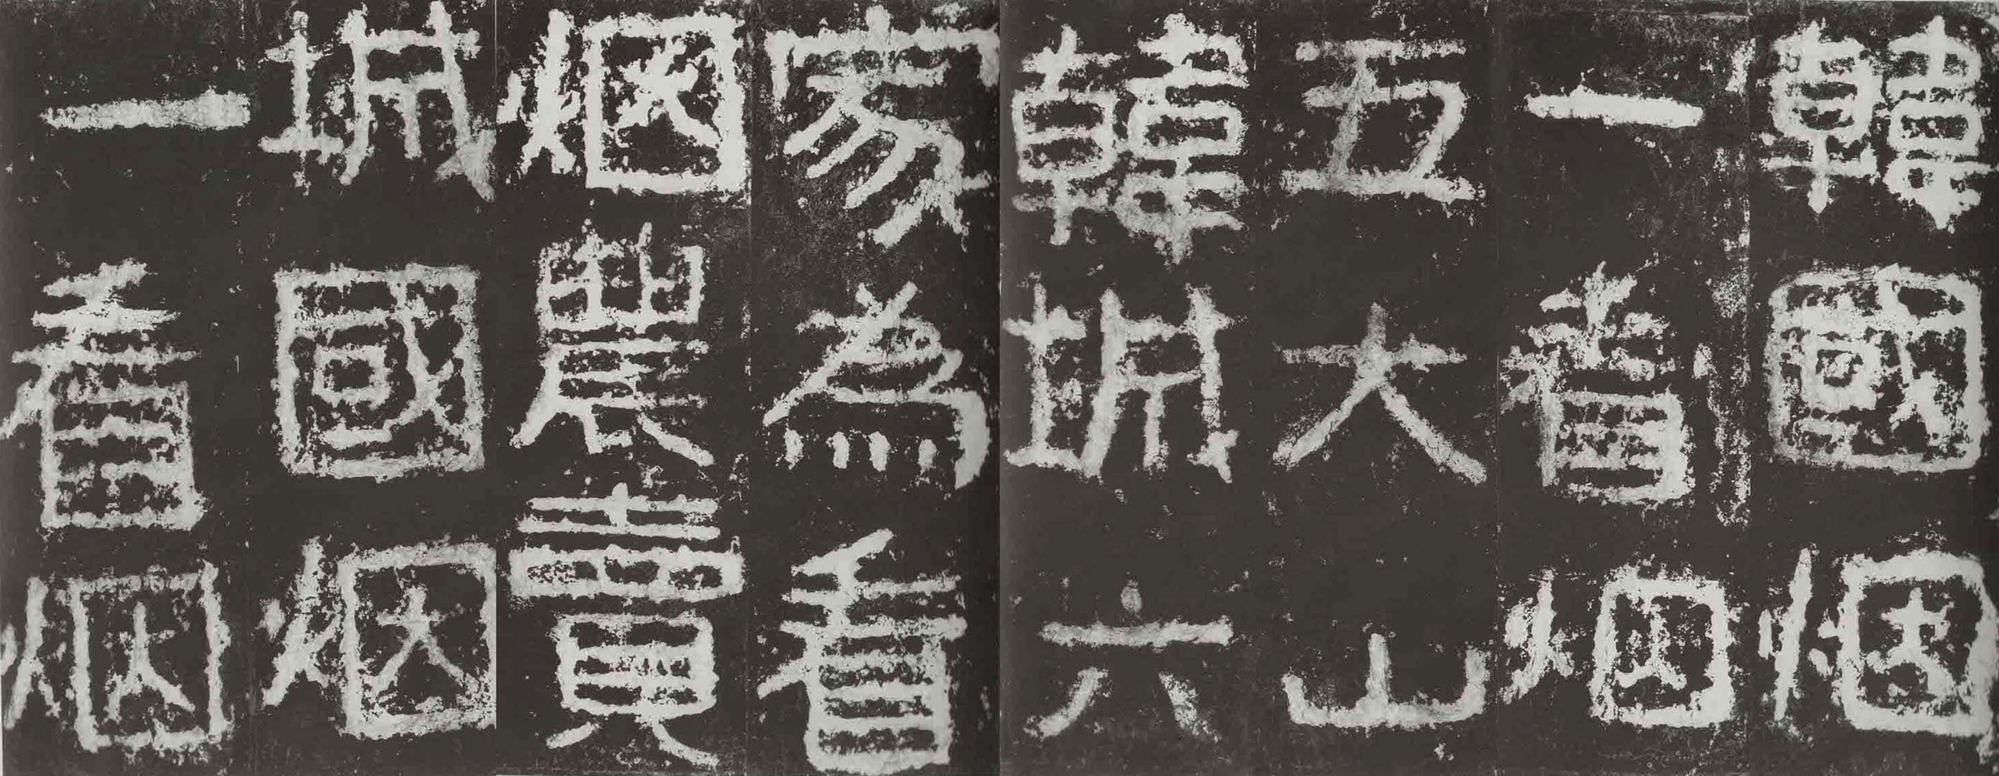 韓國烟
一看烟
五大山
韓城六
家為看
烟農賣
城國烟
一看烟